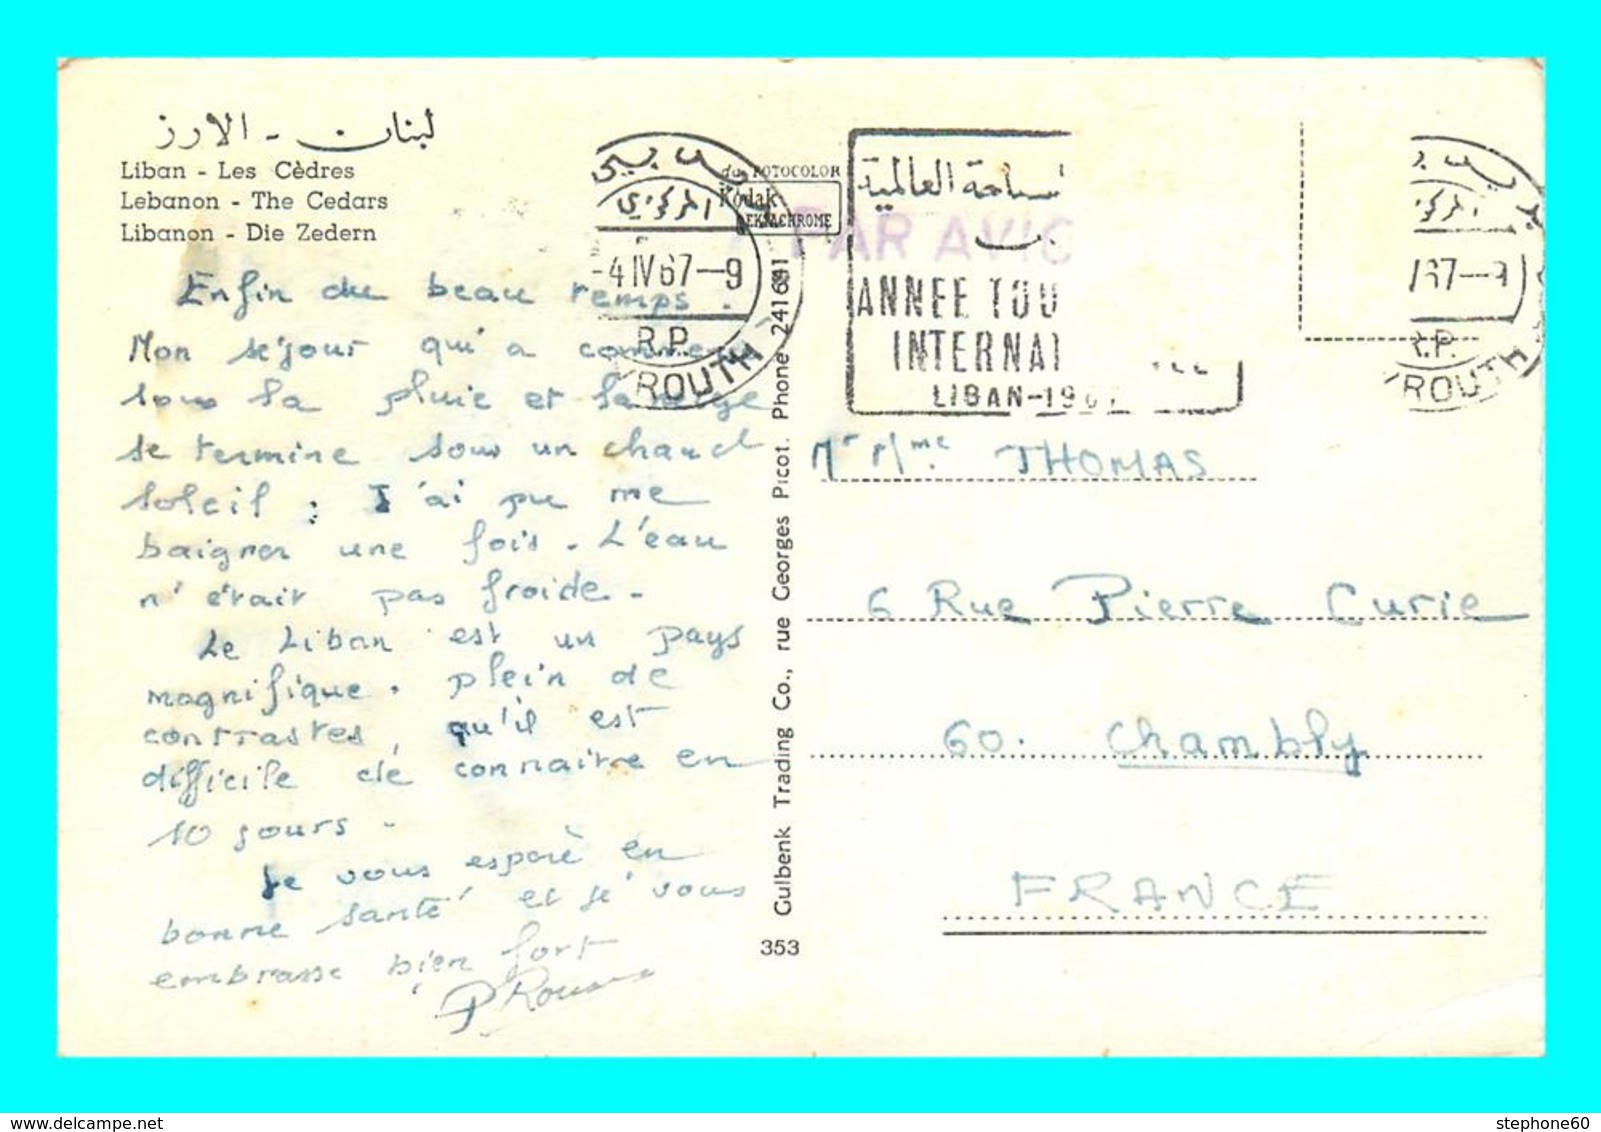 لبنان - الارز
Liban - Les Cèdres
Lebanon - The Cedars
Libanon - Die Zedern
Enfin du beau temps.
Mon séjour qui a commencé
sous la pluie et la neige
se termine sous un chaud
soleil : J'ai pu me
baigner une fois. L'eau
n'était pas froide.
Le Liban est un pays
magnifique. plein de
contrastes, qu'il est
difficile de connaitre en
10 jours.
Je vous espère en
bonne santé et je vous
embrasse bien fort
FOTOCOLOR
Kodak
EKTACHROME
-4 IV 67-9
R.P.
ROUTH
PAR AVIO
العالمية
ANNEE TOU
INTERNAT
LIBAN-1967
V67-9
R.P.
YROUTH
Gulbenk Trading Co., rue Georges Picot. Phone 241691
353
Mr Mme THOMAS
6 Rue Pierre Curie
60. Chambly
FRANCE
stephone60